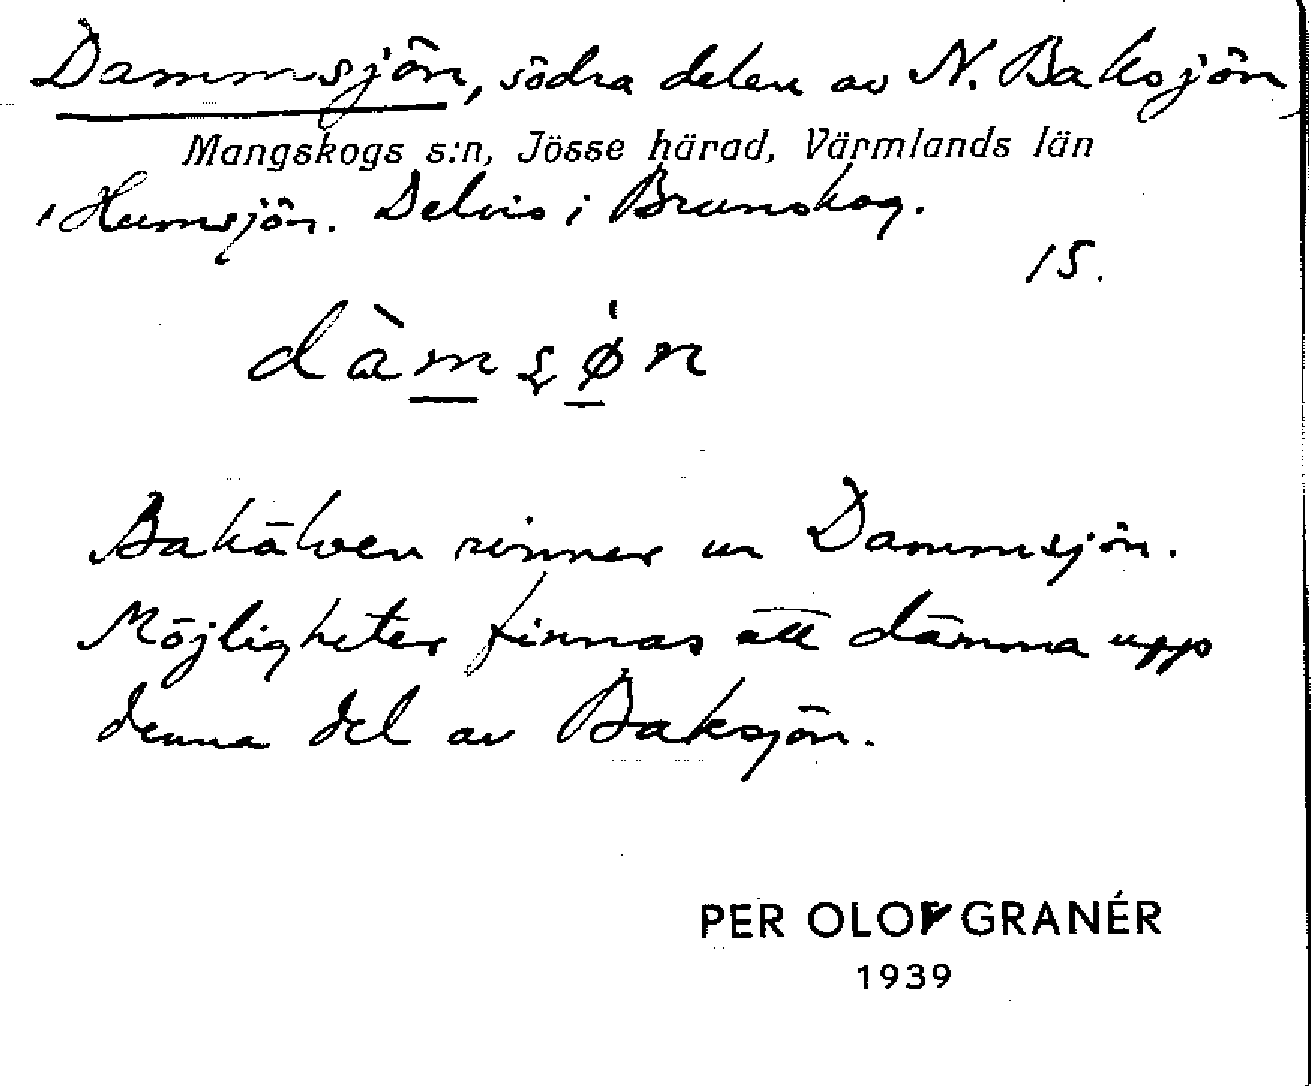 Dammsjön, södra delen av N. Baksjön,
Mangskogs s:n, Jösse härad, Värmlands län
i Humsjön. Delvis i Brunskog.
15.
dàmsø̀n
Bakälven rinner ur Dammsjön.
Möjligheter finnas att dämma upp
denna del av Baksjön.
PER OLOF GRANÉR
1939